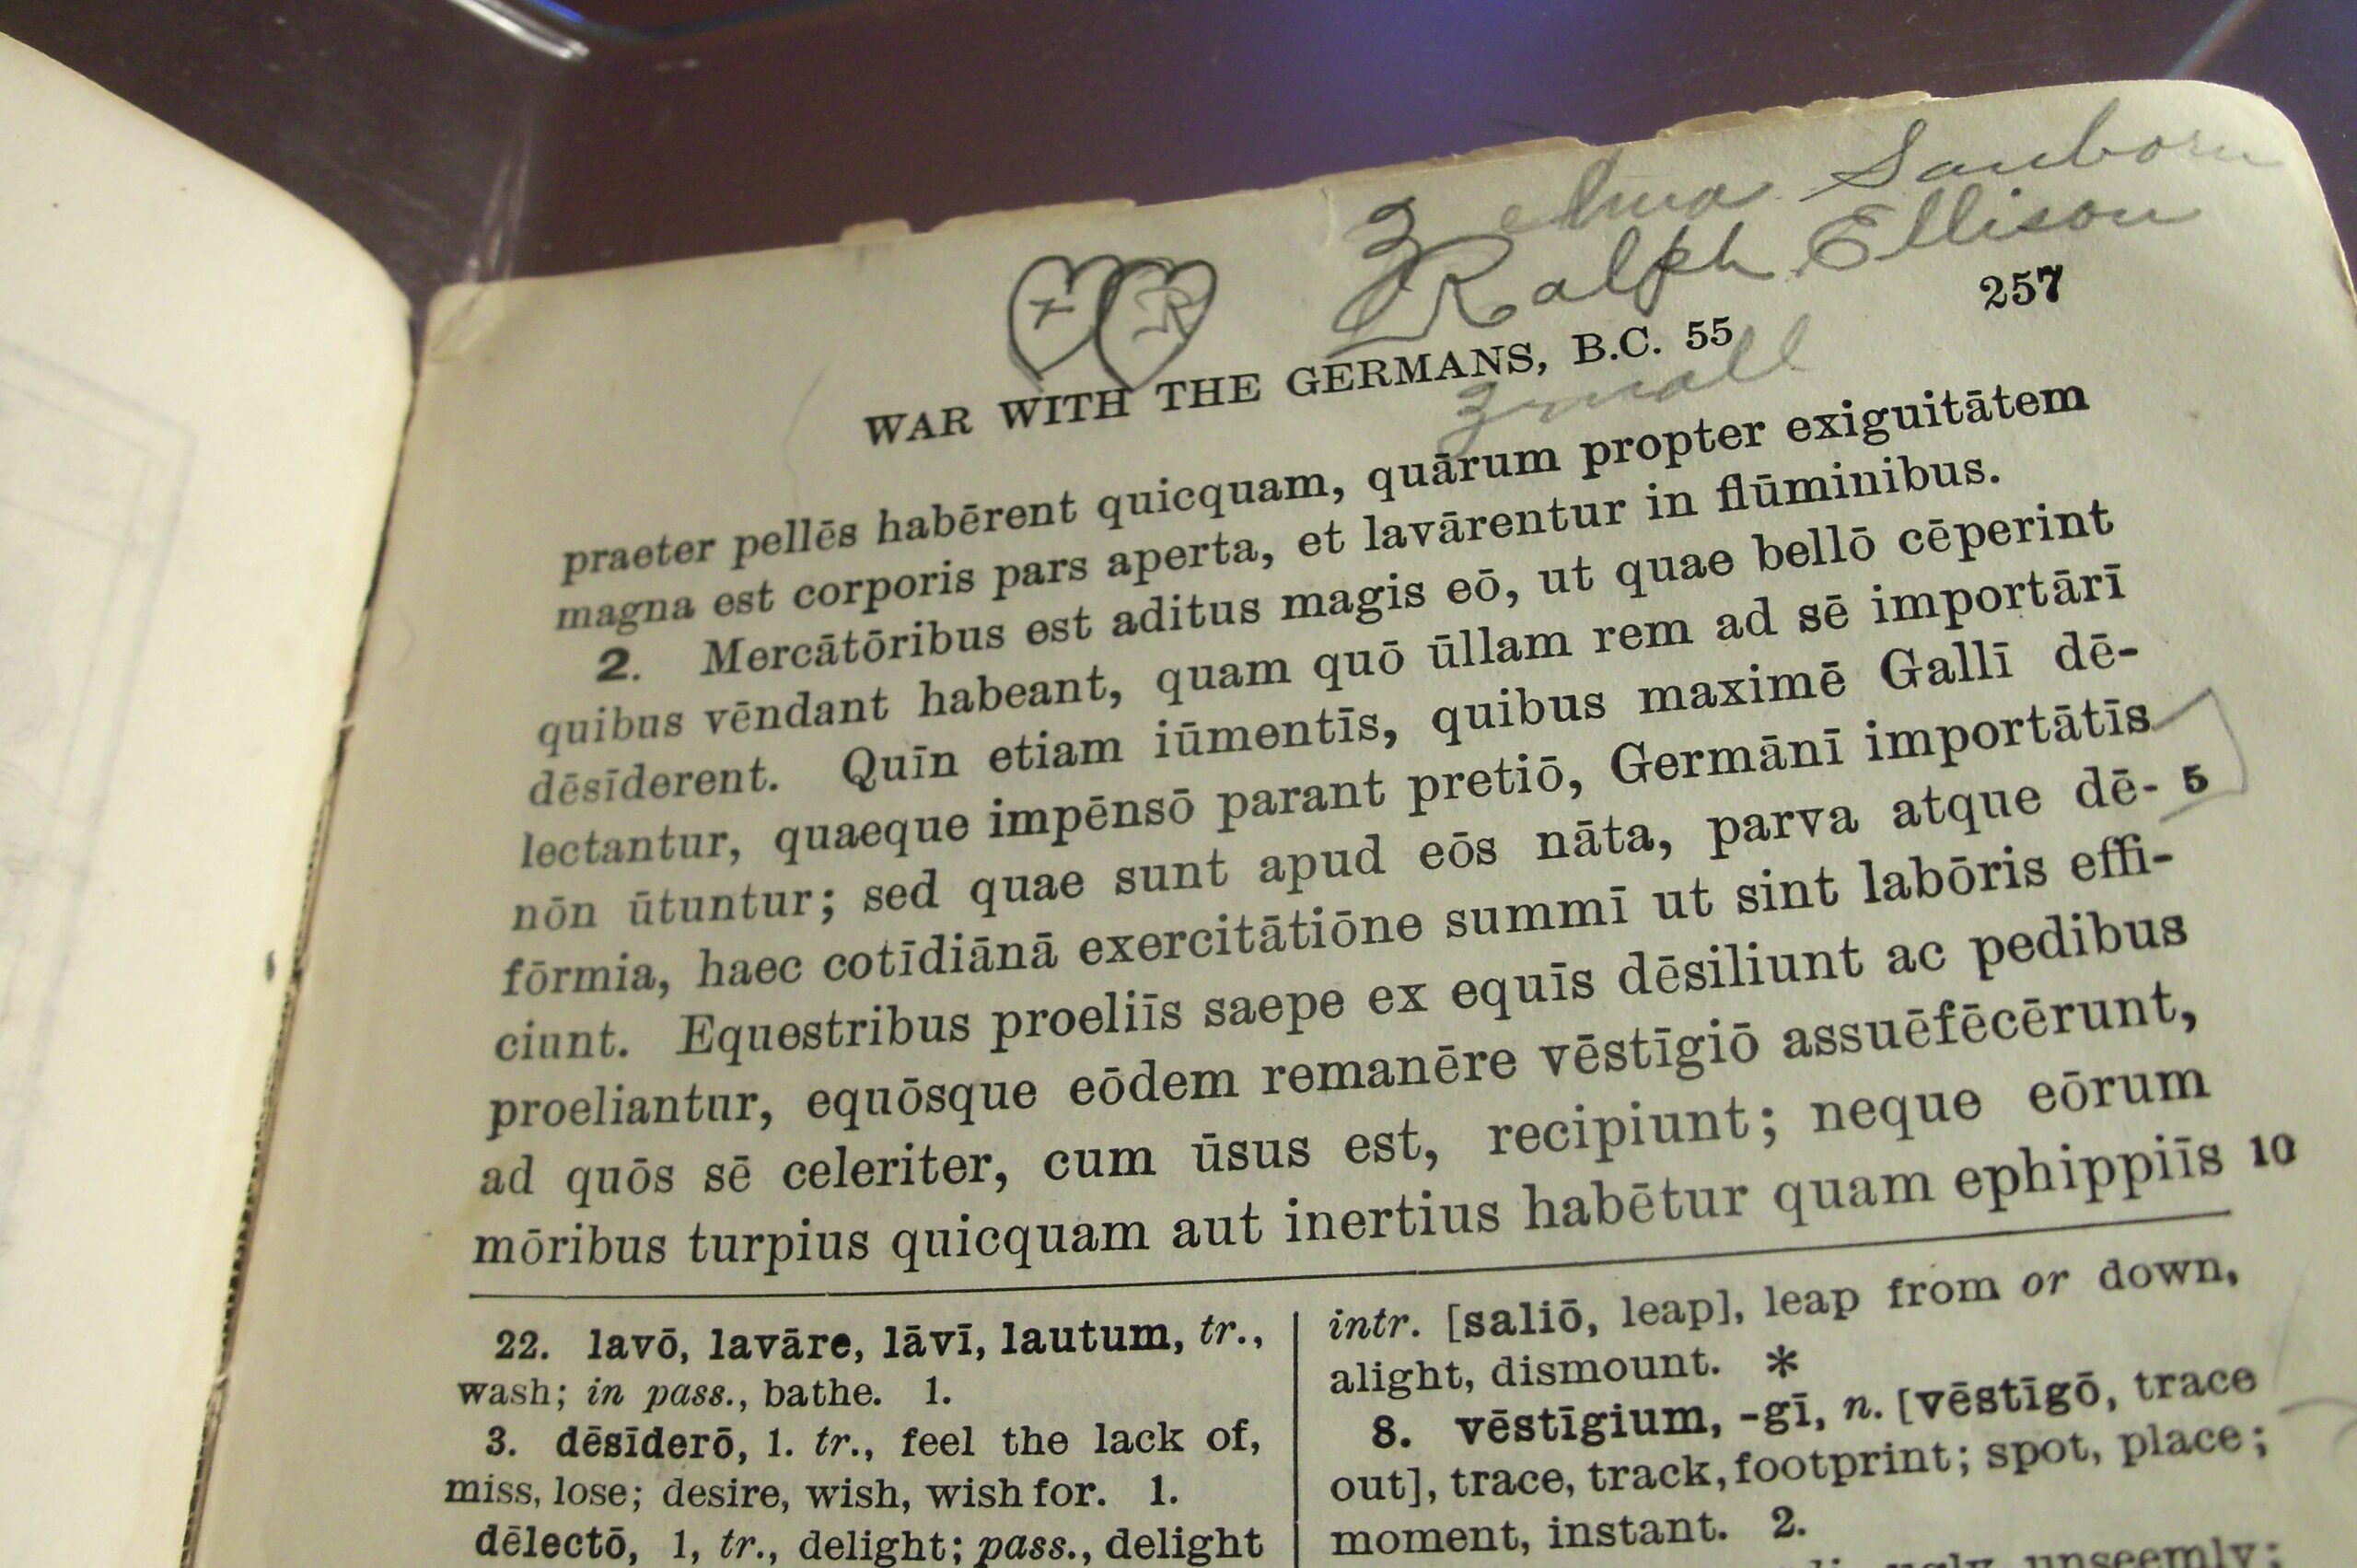 Zelma Sanborn
Ralph Ellison
Z R
257
WAR WITH THE GERMANS, B.C. 55
praeter pellēs habērent quicquam, quārum propter exiguitātem
magna est corporis pars aperta, et lavārentur in flūminibus.
2. Mercātōribus est aditus magis eō, ut quae bellō cēperint
quibus vēndant habeant, quam quō ūllam rem ad sē importārī
dēsīderent. Quīn etiam iūmentīs, quibus maximē Gallī dē-
lectantur, quaeque impēnsō parant pretiō, Germānī importātīs
nōn ūtuntur; sed quae sunt apud eōs nāta, parva atque dē- 5
fōrmia, haec cotīdiānā exercitātiōne summī ut sint labōris effi-
ciunt. Equestribus proeliīs saepe ex equīs dēsiliunt ac pedibus
proeliantur, equōsque eōdem remanēre vēstīgiō assuēfēcērunt,
ad quōs sē celeriter, cum ūsus est, recipiunt; neque eōrum
mōribus turpius quicquam aut inertius habētur quam ephippiīs 10
22. lavō, lavāre, lāvī, lautum, tr.,
wash; in pass., bathe. 1.
3. dēsīderō, 1. tr., feel the lack of,
miss, lose; desire, wish, wish for. 1.
dēlectō, 1, tr., delight; pass., delight
intr. [saliō, leap], leap from or down,
alight, dismount. *
8. vēstīgium, -gī, n. [vēstīgō, trace
out], trace, track, footprint; spot, place;
moment, instant. 2.
ugly, unseemly;